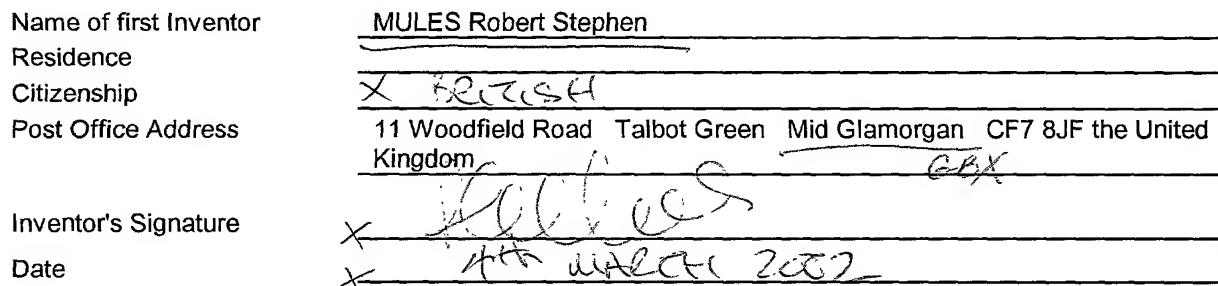 Name of first Inventor MULES Robert Stephen
Residence
Citizenship X BRITISH
Post Office Address 11 Woodfield Road Talbot Green Mid Glamorgan CF7 8JF the United
Kingdom GBX
Inventor's Signature X
Date X 4th MARCH 2002